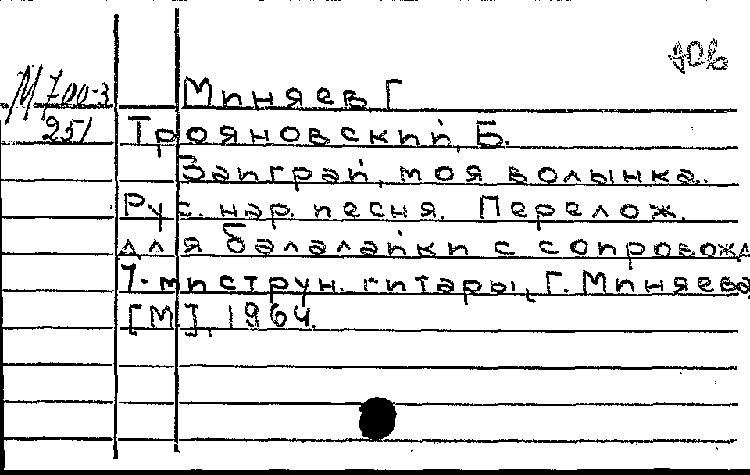 М 700-3
251
Миняев Г
Трояновский, Б.
Заиграй, моя волынка.
Рус. нар. песня. Перелож.
для балалайки с сопровожд
7-миструн. гитары, Г. Миняева
[М], 1964.